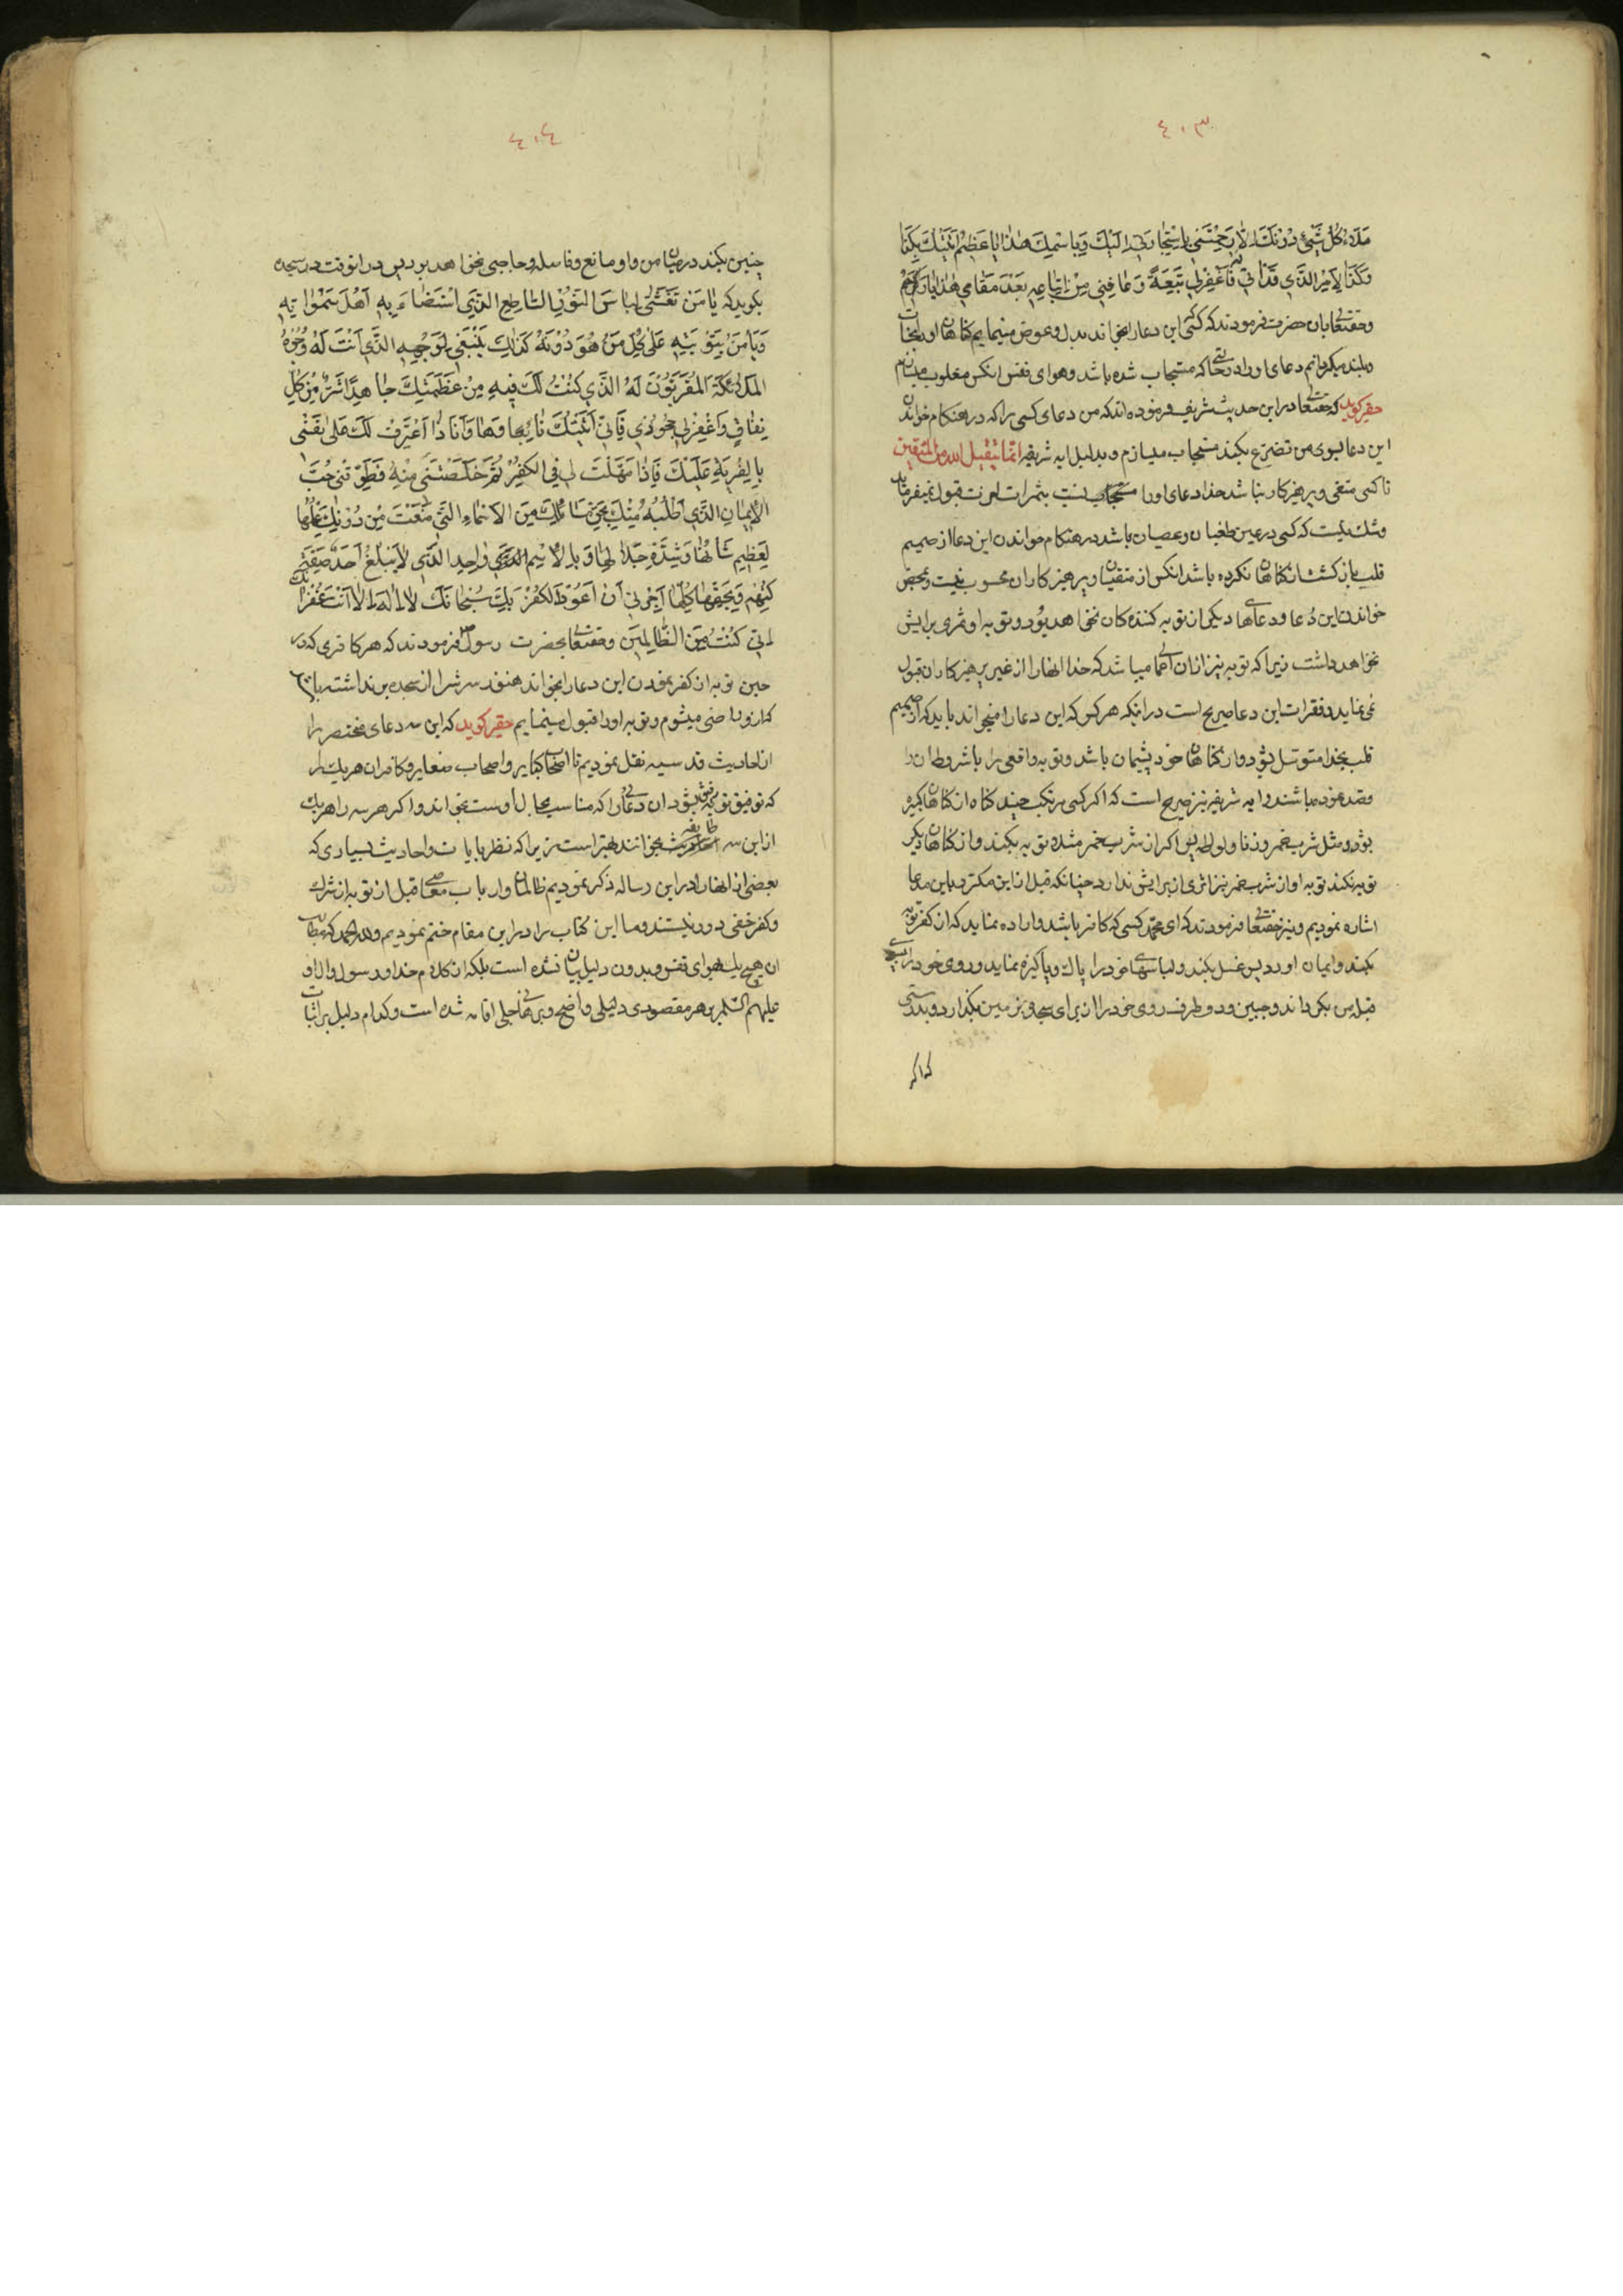 ٤٠٣
ملاء كل شيء دونك الا رحمتني باستجارتي اليك وباسمك هذا يا عظيم اتيتك بكذا
وكذا لامر الذي قد اتي فاغفر لي تبعة وعافني من اتباعه بعد مقامي هذا يا كريم
وحقتعالی بان حضرت فرمودند که کسی این دعا را بخواند بدل وعوض مینمایم کناهان او را بحسنات
وبلند میکردانم دعای او را در حالتی که مستجاب شده باشد وهوای نفس انکس مغلوب
حقیر کوید که حقتعالی در این حدیث شریف فرموده اند که من دعای کسی را که در هنکام خواندن
این دعا بسوی من تضرع بکند مستجاب میسازم وبدلیل ایه شریفه انما يتقبل الله من المتقين
تا کسی متقی وپرهیزکار نباشد خدا دعای او را مستجاب نیست بثمرات اخرت قبول نمیفرماید
وشک نیست که کسی در عین طغیان وعصیان باشد در هنکام خواندن این دعا از صمیم
قلب باز کشت از کناهان نکرده باشد انکس از متقیان وپرهیزکاران محسوب نیست وبمحض
خواندن این دعا ودعاهای دیکر از توبه کننده کان نخواهد بود وتوبه او ثمری برایش
نخواهد داشت زیرا که توبه نیز از ان اعمالی میباشد که خدا انها را از غیر پرهیزکاران قبول
نمی نماید وفقرات این دعا صریح است در اینکه هرکس که این دعا را میخواند باید که از صمیم
قلب بخدا متوسل بشود واز کناهان خود پشیمان باشد وتوبه واقعی را با شروط ان را
وقصد نموده باشند وایه شریفه نیز صریح است که اکر کسی مرتکب چند کناه از کناهان کبیره
بشود ومثل شرب خمر وزنا ولواطه پس اکر از شرب خمر مثلا توبه بکند واز کناهان دیکر
توبه نکند توبه او از شرب خمر نیز اثری از برایش ندارد چنانکه قبل از این مکرر باین مدعا
اشاره نمودیم ونیز حقتعالی فرمودند که ای محمد کسی که کافر باشد واراده نماید که از کفر توبه
بکند وایمان اورد پس غسل بکند ولباسهای خود را پاک وپاکیزه نماید وروی خود را بسوی
قبله من بکرداند وجبین ودو طرف روی خود را از برای سجده بر زمین بکذارد وبدرستی
که اکر
٤٠٤
چنین بکند در میان من واو مانع وفاصله وحاجبی نخواهد بود پس در انوقت در سجده
بکوید که يا من تغشى لباس النور الساطع الذي استضاء به اهل سمواته
ويا من على كل من هو دونه كذلك ينبغي لوجهه الذي انت له وجوه
الملائكة المقربون له الذي كنت لك فيه من عظمتك جاهدا شر من كل
نفاق واغفر لي جحودي فاني اتيتك تائبا وها انا ذا اعترف لك على نفسي
بالفرية عليك فاذا مهلت لي في الكفر ثم خلصتني منه فطوقني حب
الايمان الذي اطلبه منك بحق مالك من الاسماء التي منعت من دونك علمها
لعظيم شانها وشدة جلالها وبالاسم الواحد الذي لا يبلغ احد صفة
كنهه وبحقها كلها اجرني ان اعود لكفر بك سبحانك لا اله الا انت غفرانك
اني كنت من الظالمين وحقتعالی بحضرت رسول فرمودند که هر کافری که در
حین توبه از کفر نمودن این دعا را بخواند هنوز سرش را از سجده برنداشته باشد
که از او راضی میشوم وتوبه او را قبول مینمایم حقیر کوید که این سه دعای مختصر را
از احادیث قدسیه نقل نمودیم تا اصحاب کبایر واصحاب صغایر وکافران هریک را
که توفیق توبه رفیق بشود ان دعائی را که مناسب بحال اوست بخواند واکر هر سه را هریک
از این سه طایفه بخوانند بهتر است زیرا که نظر بایات واحادیث بسیاری که
بعضی از انها را در این رساله ذکر نمودیم ظالمان وارباب معاصی قبل از توبه از شرک
وکفر خفی دور نیستند وما این کتاب را در این مقام ختم نمودیم ولله الحمد که مطالب
ان هیچ یک بهوای نفس وبدون دلیل بیان نشده است بلکه از کلام خدا ورسول وال او
علیهم السلام بر هر مقصودی دلیلی واضح وبرهانی جلی اقامه شده است وکدام دلیل بر اثبات